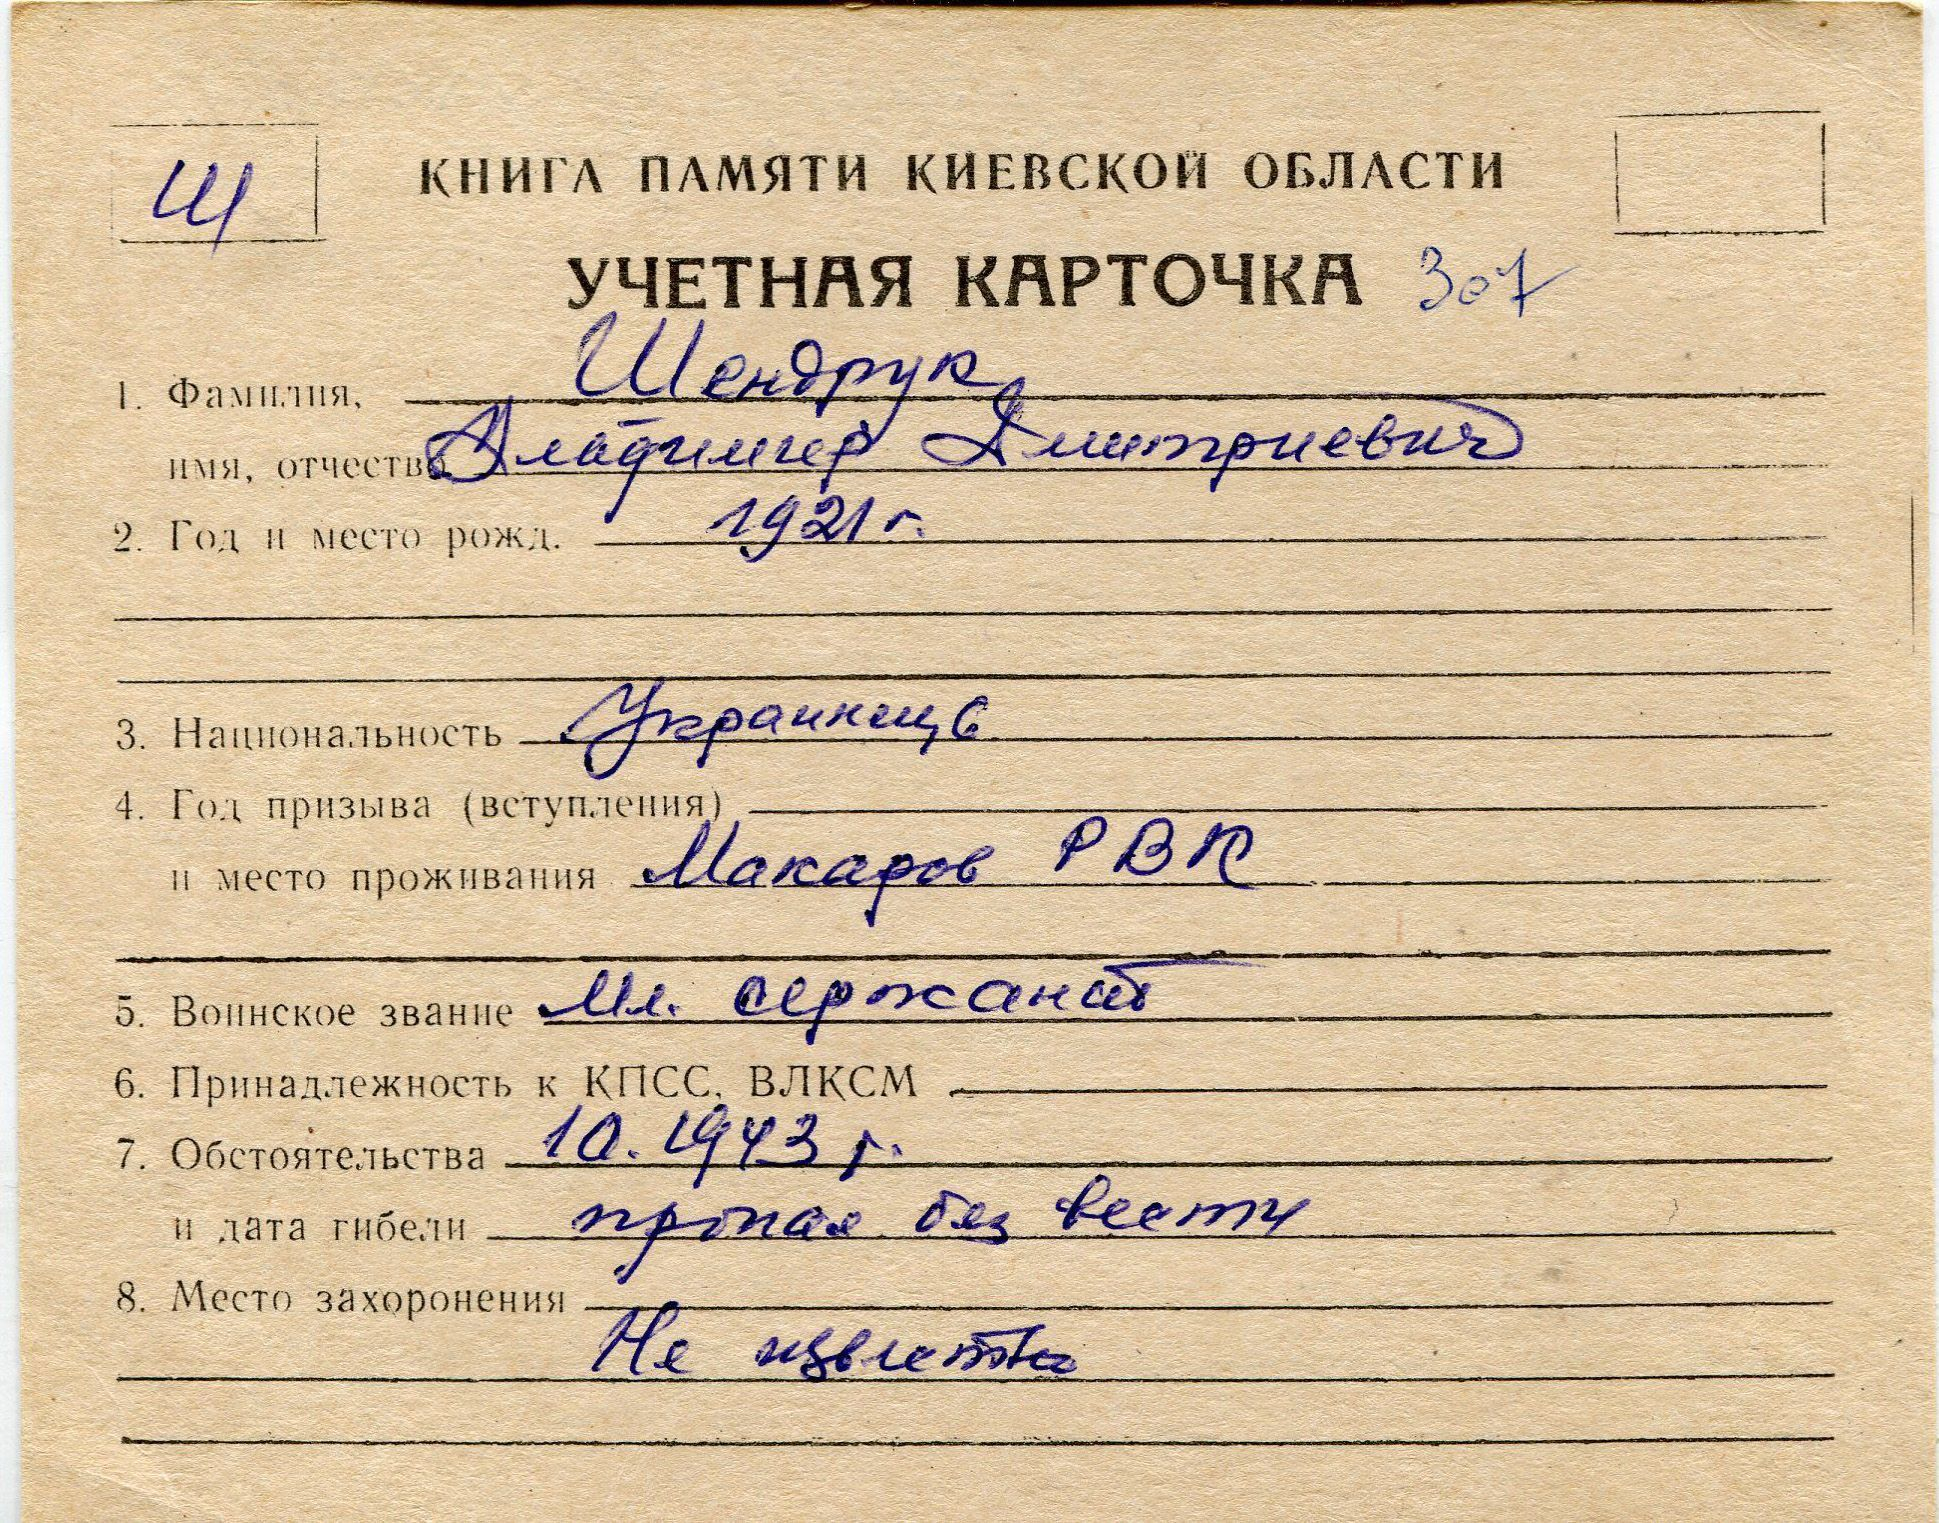 Щ
КНИГА ПАМЯТИ КИЕВСКОЙ ОБЛАСТИ
УЧЕТНАЯ КАРТОЧКА 307
1. Фамилия, Шендрук
имя, отчество Владимир Дмитриевич
2. Год и место рожд. 1921 г.
3. Национальность Украинець
4. Год призыва (вступления)
и место проживания Макаров РВК
5. Воинское звание Мл. сержант
6. Принадлежность к КПСС, ВЛКСМ
7. Обстоятельства 10.1943 г.
и дата гибели пропал без вести
8. Место захоронения
Не известно